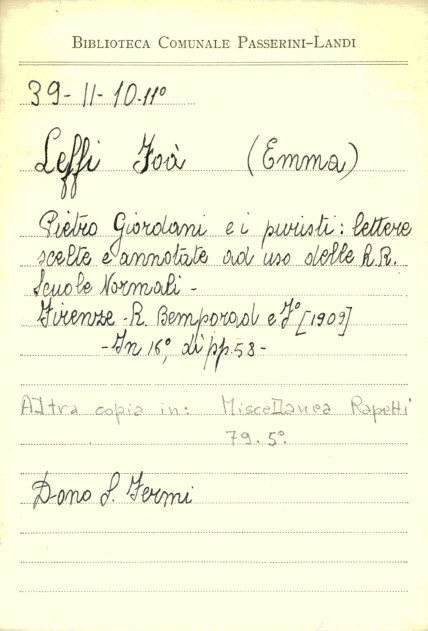 BIBLIOTECA COMUNALE PASSERINI-LANDI
39-11-10.11º
Leffi Foà (Emma)
Pietro Giordani e i puristi: lettere
scelte e annotate ad uso delle R.R.
Scuole Normali -
Firenze - R. Bemporad e Fº [1909]
- In 16º, di pp. 58 -
Altra copia in: Miscellanea Rapetti
79. 5º.
Dono S. Fermi